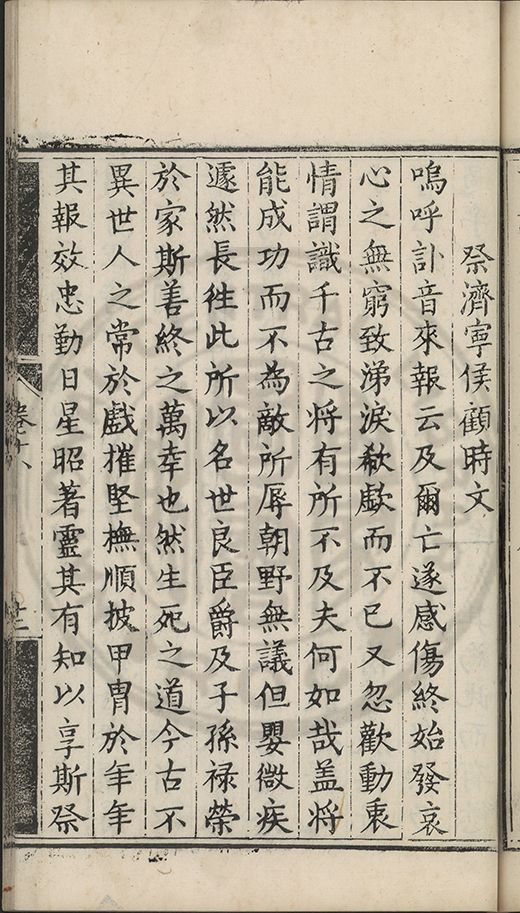 祭濟寧侯顧時文
嗚呼訃音來報云及爾亡遂感傷終始發哀
心之無窮致涕淚欷歔而不已又忽歡動衷
情謂識千古之將有所不及夫何如哉盖將
能成功而不為敵所辱朝野無議但嬰微疾
遽然長徃此所以名世良臣爵及子孫禄榮
於家斯善終之萬幸也然生死之道今古不
異世人之常於戲摧堅撫順披甲冑於年年
其報效忠勤日星昭著靈其有知以享斯祭
卷十八
廿二